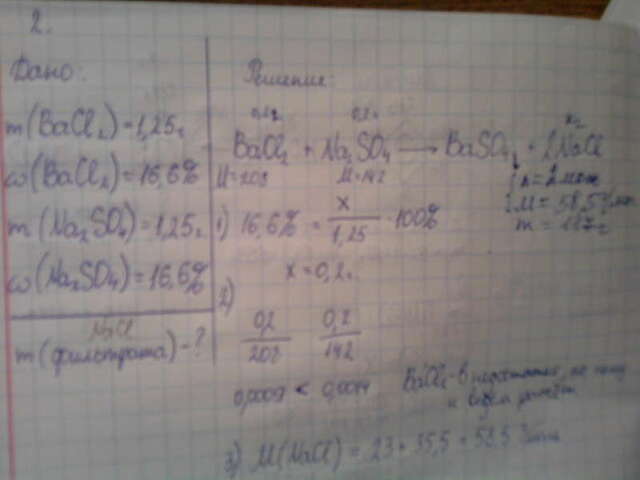 2.
Дано:
m(BaCl₂)=1,25г
ω(BaCl₂)=16,6%
m(Na₂SO₄)=1,25г
ω(Na₂SO₄)=16,6%
NaCl
m(фильтрата)-?
Решение:
0,2г 0,2г x г
BaCl₂ + Na₂SO₄ → BaSO₄↓ + 2NaCl
M=208 M=142
n=2моль
M=58,5г/моль
m=117г
1) 16,6% = x/1,25 · 100%
x=0,2г
2)
0,2/208 0,2/142
0,0009 < 0,0014 BaCl₂ - в недостатке, по нему
и ведём расчёт
3) M(NaCl) = 23+35,5=58,5 г/моль